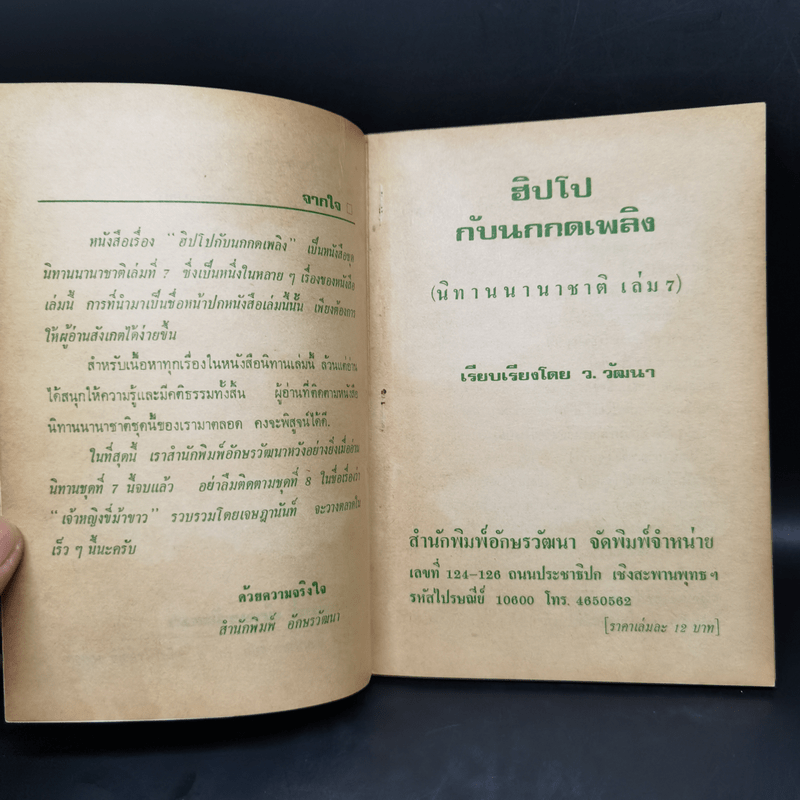 จากใจ
หนังสือเรื่อง "ฮิปโปกับนกกดเพลิง" เป็นหนังสือชุด
นิทานนานาชาติเล่มที่ 7 ซึ่งเป็นหนึ่งในหลาย ๆ เรื่องของหนังสือ
เล่มนี้ การที่นำมาเป็นชื่อหน้าปกหนังสือเล่มนี้นั้น เพียงต้องการ
ให้ผู้อ่านสังเกตได้ง่ายขึ้น
สำหรับเนื้อหาทุกเรื่องในหนังสือนิทานเล่มนี้ ล้วนแต่อ่าน
ได้สนุกให้ความรู้และมีคติธรรมทั้งสิ้น ผู้อ่านที่ติดตามหนังสือ
นิทานนานาชาติชุดนี้ของเรามาตลอด คงจะพิสูจน์ได้ดี.
ในที่สุดนี้ เราสำนักพิมพ์อักษรวัฒนาหวังอย่างยิ่งเมื่ออ่าน
นิทานชุดที่ 7 นี้จบแล้ว อย่าลืมติดตามชุดที่ 8 ในชื่อเรื่องว่า
"เจ้าหญิงขี่ม้าขาว" รวบรวมโดยเจษฎานันท์ จะวางตลาดใน
เร็ว ๆ นี้นะครับ
ด้วยความจริงใจ
สำนักพิมพ์ อักษรวัฒนา
ฮิปโป
กับนกกดเพลิง
(นิทานนานาชาติ เล่ม 7)
เรียบเรียงโดย ว. วัฒนา
สำนักพิมพ์อักษรวัฒนา จัดพิมพ์จำหน่าย
เลขที่ 124-126 ถนนประชาธิปก เชิงสะพานพุทธฯ
รหัสไปรษณีย์ 10600 โทร. 4650562
[ราคาเล่มละ 12 บาท]